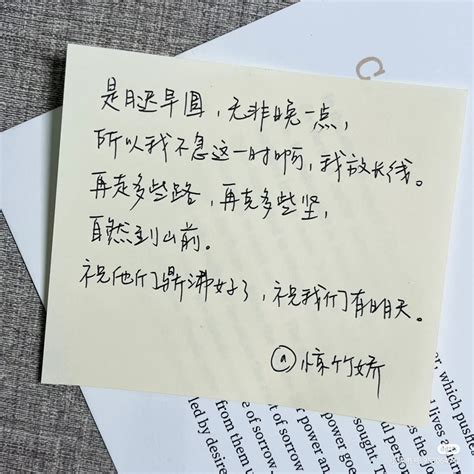 是月迟早圆，无非晚一点，
所以我不急这一时啊，我放长线。
再走多些路，再克多些坚，
自然到山前。
祝他们鼎沸好了，祝我们有明天。
@惊竹娇
C
, which pushe
d lives
power and
sought. The
of sorrow,
power and power goe
from them
of sorrow
led by desire